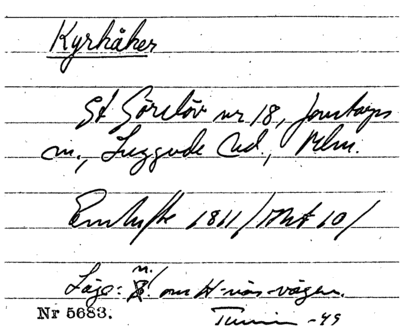 Kyrkåker
St Görslöv nr 18, Jonstorps
sn., Luggude hd., Mlm.
Enskifte 1811/Akt 10/
Läge: n. om H-näsvägen.
Nr 5683.
-49